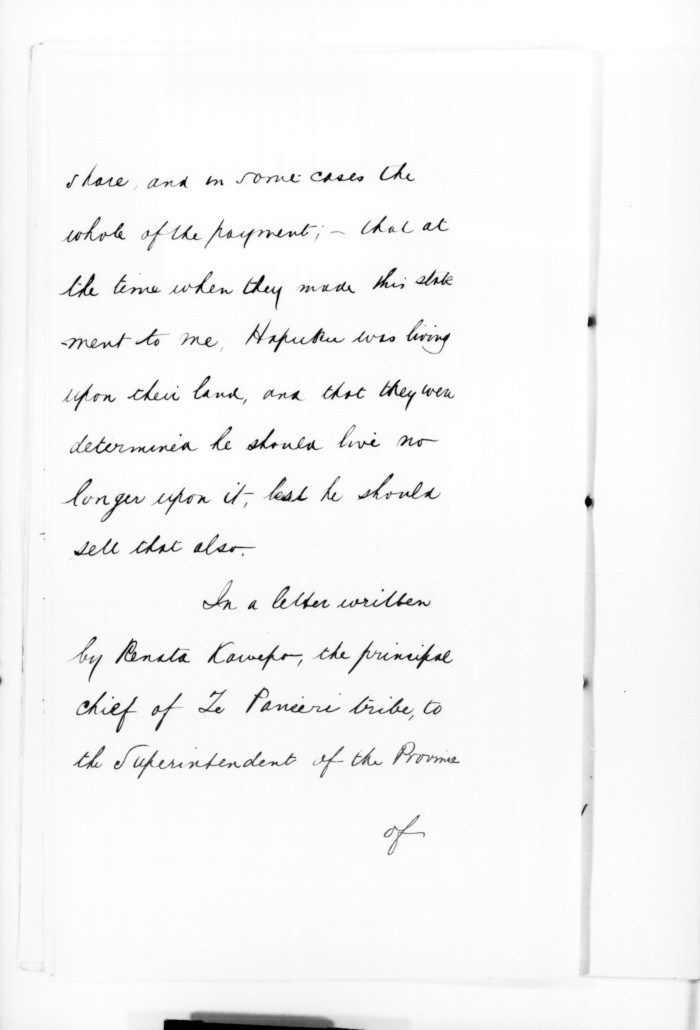 share, and in some cases the
whole of the payment; – that at
the time when they made this state
-ment to me, Hapuku was living
upon their land, and that they were
determined he should live no
longer upon it, lest he should
sell that also.
In a letter written
by Renata Kawepo, the principal
chief of Te Panieri tribe, to
the Superintendent of the Province
of